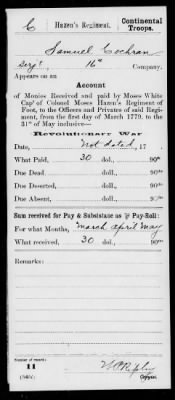 C Hazen's Regiment. Continental
Troops.
Samuel Cochran
Serj't, 16th Company.
Appears on an
Account
of Monies Received and paid by Moses White
Cap't of Colonel Moses Hazen's Regiment of
Foot, to the Officers and Privates of said Regi-
ment, from the first day of March 1779, to the
31st of May inclusive—
Revolutionary War
Date, Not dated, 17 .
What Paid, 30 dol., 90ths
Due Dead, doll., 90ths
Due Deserted, doll., 90ths
Due Absent, doll., 90ths
Sum received for Pay & Subsistance as ⅌ Pay-Roll:
For what Months, March April May
What received, 30 dol., 90ths
Remarks:
Number of record:
11
Copyist.